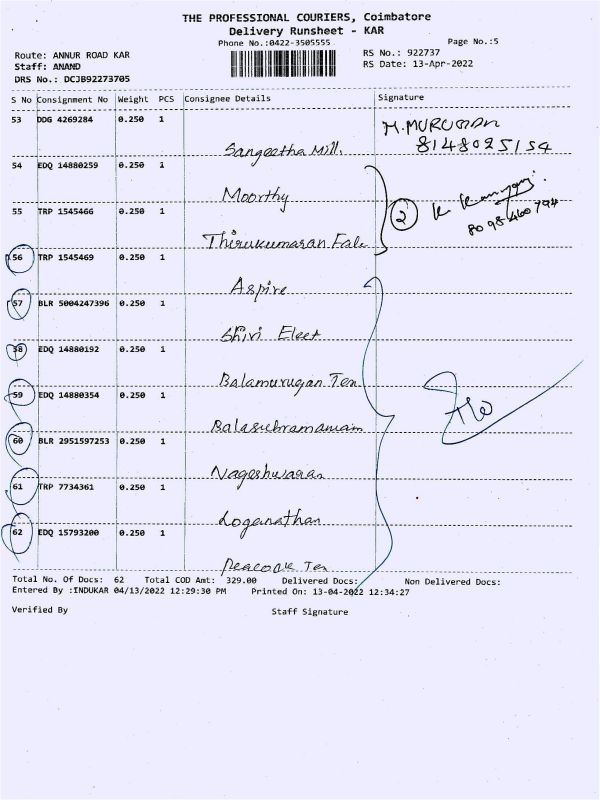 THE PROFESSIONAL COURIERS, Coimbatore
Delivery Runsheet - KAR
Phone No.:0422-3505555
Page No.:5
Route: ANNUR ROAD KAR
RS No.: 922737
Staff: ANAND
RS Date: 13-Apr-2022
DRS No.: DCJB92273705
S No Consignment No Weight PCS Consignee Details Signature
53 DDG 4269284 0.250 1
M.MURUGAN
8148025154
Sangeetha Mill.
54 EDQ 14880259 0.250 1
Moorthy
2
8098460794
55 TRP 1545466 0.250 1
Thirukumaran Fab
56 TRP 1545469 0.250 1
Aspire
57 BLR 5004247396 0.250 1
Shiri Eleet
58 EDQ 14880192 0.250 1
Balamurugan Tex
59 EDQ 14880354 0.250 1
Balasubramaniam
60 BLR 2951597253 0.250 1
Nageshwaran
61 TRP 7734361 0.250 1
Loganathan
62 EDQ 15793200 0.250 1
Peacock Tex
Total No. Of Docs: 62 Total COD Amt: 329.00 Delivered Docs: Non Delivered Docs:
Entered By :INDUKAR 04/13/2022 12:29:30 PM Printed On: 13-04-2022 12:34:27
Verified By Staff Signature